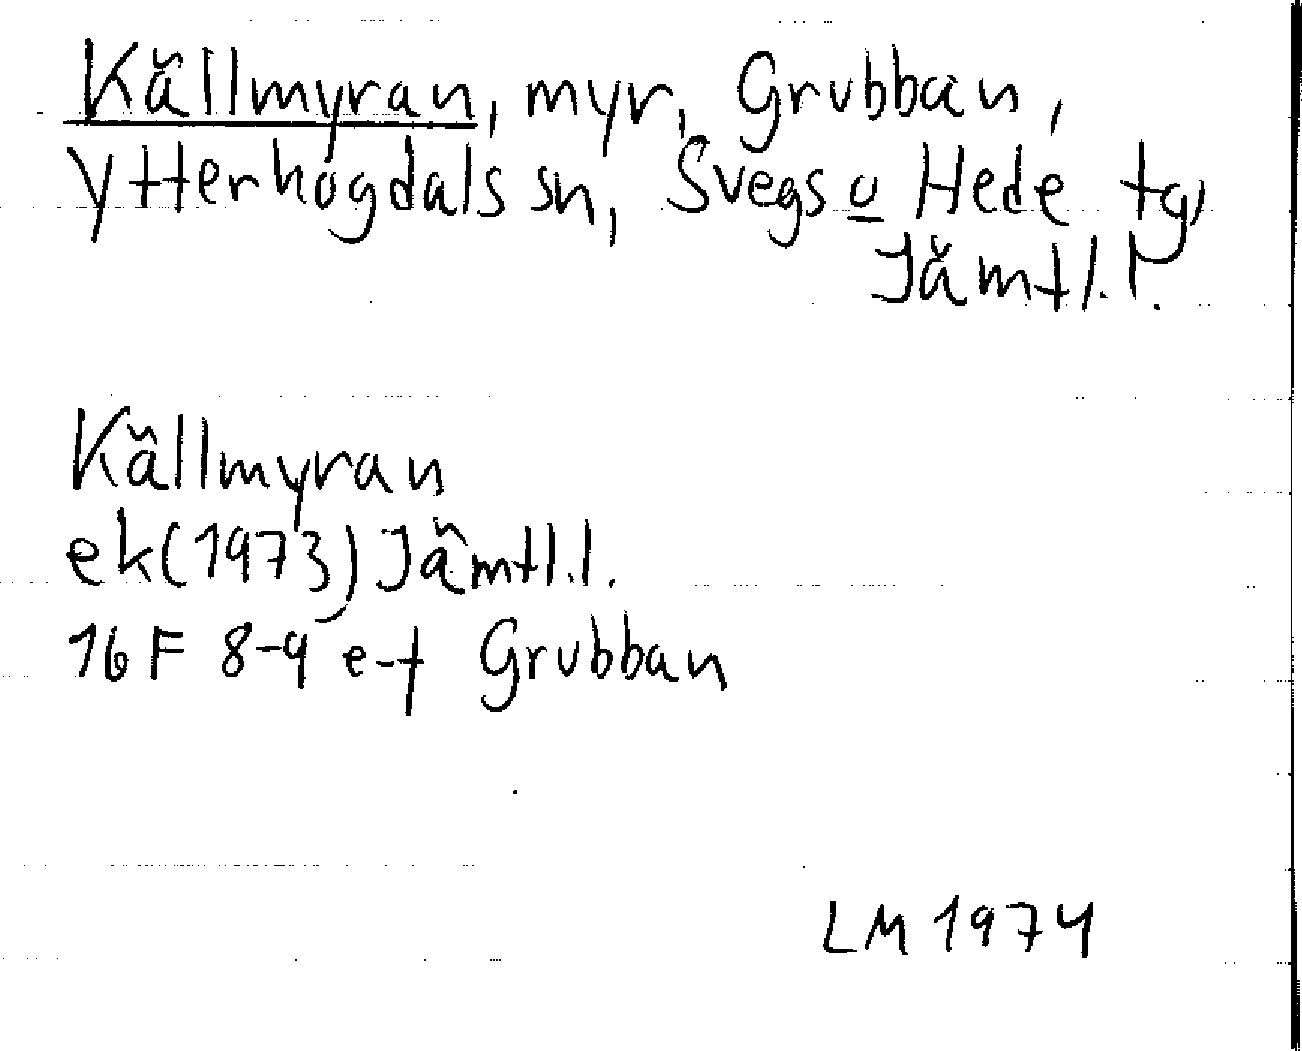 Källmyran, myr, Grubban,
Ytterhogdals sn, Svegs o Hede tg,
Jämtl. l.
Källmyran
ek (1973) Jämtl. l.
16 F 8-9 e-f Grubban
LM 1974